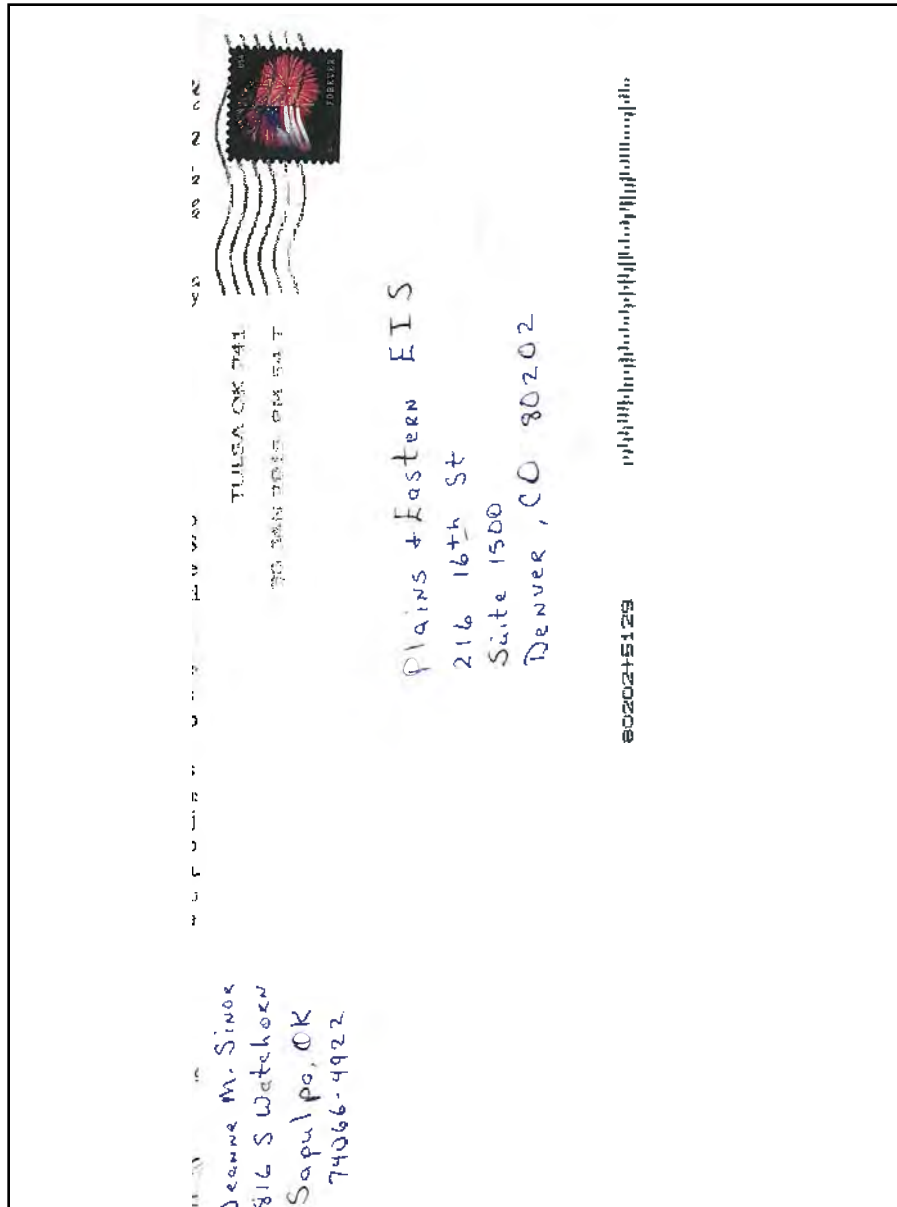 Deanne M. Sinor
816 S Watchorn
Sapulpa, OK
74066-4922
USA
FOREVER
TULSA OK 741
30 JAN 2015 PM 54 T
Plains + Eastern EIS
216 16th St
Suite 1500
Denver, CO 80202
80202+5129